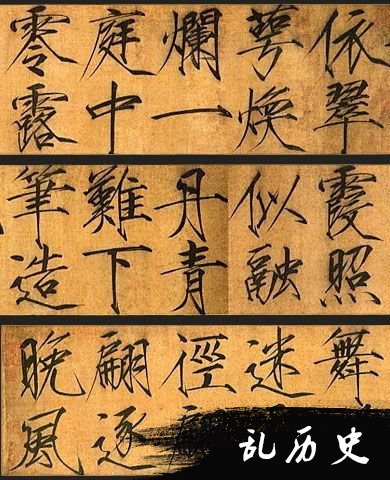 依翠
萼煥
爛一
庭中
零露
霞照
似融
丹青
難下
筆造
舞
迷
徑翩
翩逐
晚風
乱历史